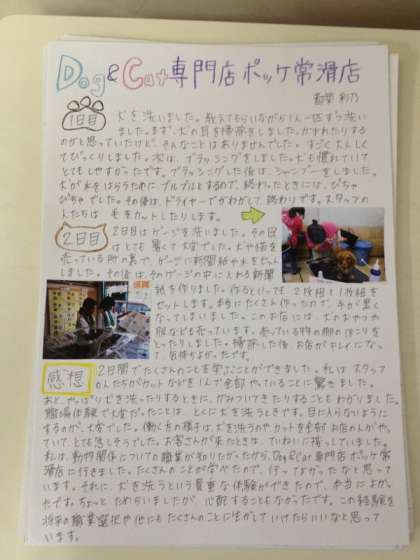 Dog&Cat専門店ポッケ常滑店
1日目
犬を洗いました。教えてもらいながら1人一匹ずつ洗い
ました。まず、犬の目を掃除をしました。かまれたりする
のかと思っていたけど、そんなことはありませんでした。すごくたんしく
てびっくりしました。次は、ブラッシングをしました。犬も慣れていて
とてもしやすかったです。ブラッシングした後は、シャンプーをしました。
犬が水をはらうためにブルブルとするので、終わったときには、びちゃ
びちゃでした。その後は、ドライヤーでかわがして、終わりです。スタッフの
人たちは 毛をカットしたりします。
2日目
2日目はゲージを洗いました。その日
はとても暑くて大変でした。犬や猫を
売っている所の裏で、ゲージに新聞紙や水をセット
しました。その後は、そのゲージの中に入れる新聞
紙を作りました。作るといっても、2枚組と1枚組を
セットします。本当にたくさん作ったので、手が黒く
なってしまいました。このお店には、犬のおやつや
服なども売っています。売っている物の棚のほこりを
とったりしました。掃除した後、お店がキレイになっ
て気持ちよかったです。
感想
2日間でたくさんのことを学ぶことができました。私は スタッフ
の人たちがカットなどを1人で全部やっていることに驚きました。
あと、やっぱり犬を洗ったりするときに、かみついてきたりすることもわかりました。
職場体験で大変だったことは、とくに犬を洗うときです。目に入らないように
するのが、大変でした。働く方の様子は、犬を洗うのやカットを全部お店の人がやっ
ていて、とても忙しそうでした。お客さんが来たときは、ていねいに接っていました。
私は、動物関係についての職業が知りたかったから、Dog&Cat専門店ポッケ常滑
店に行きました。たくさんのことが学べたので、行ってよかったなと思ってい
ます。それに、犬を洗うという貴重な体験ができたので、本当によか
ったです。ちょっと ためらいましたが 心配することもなかったです。この経験を
将来の職業選択や他にもたくさんのことに生かしていけたらいいなと思ってい
ます。